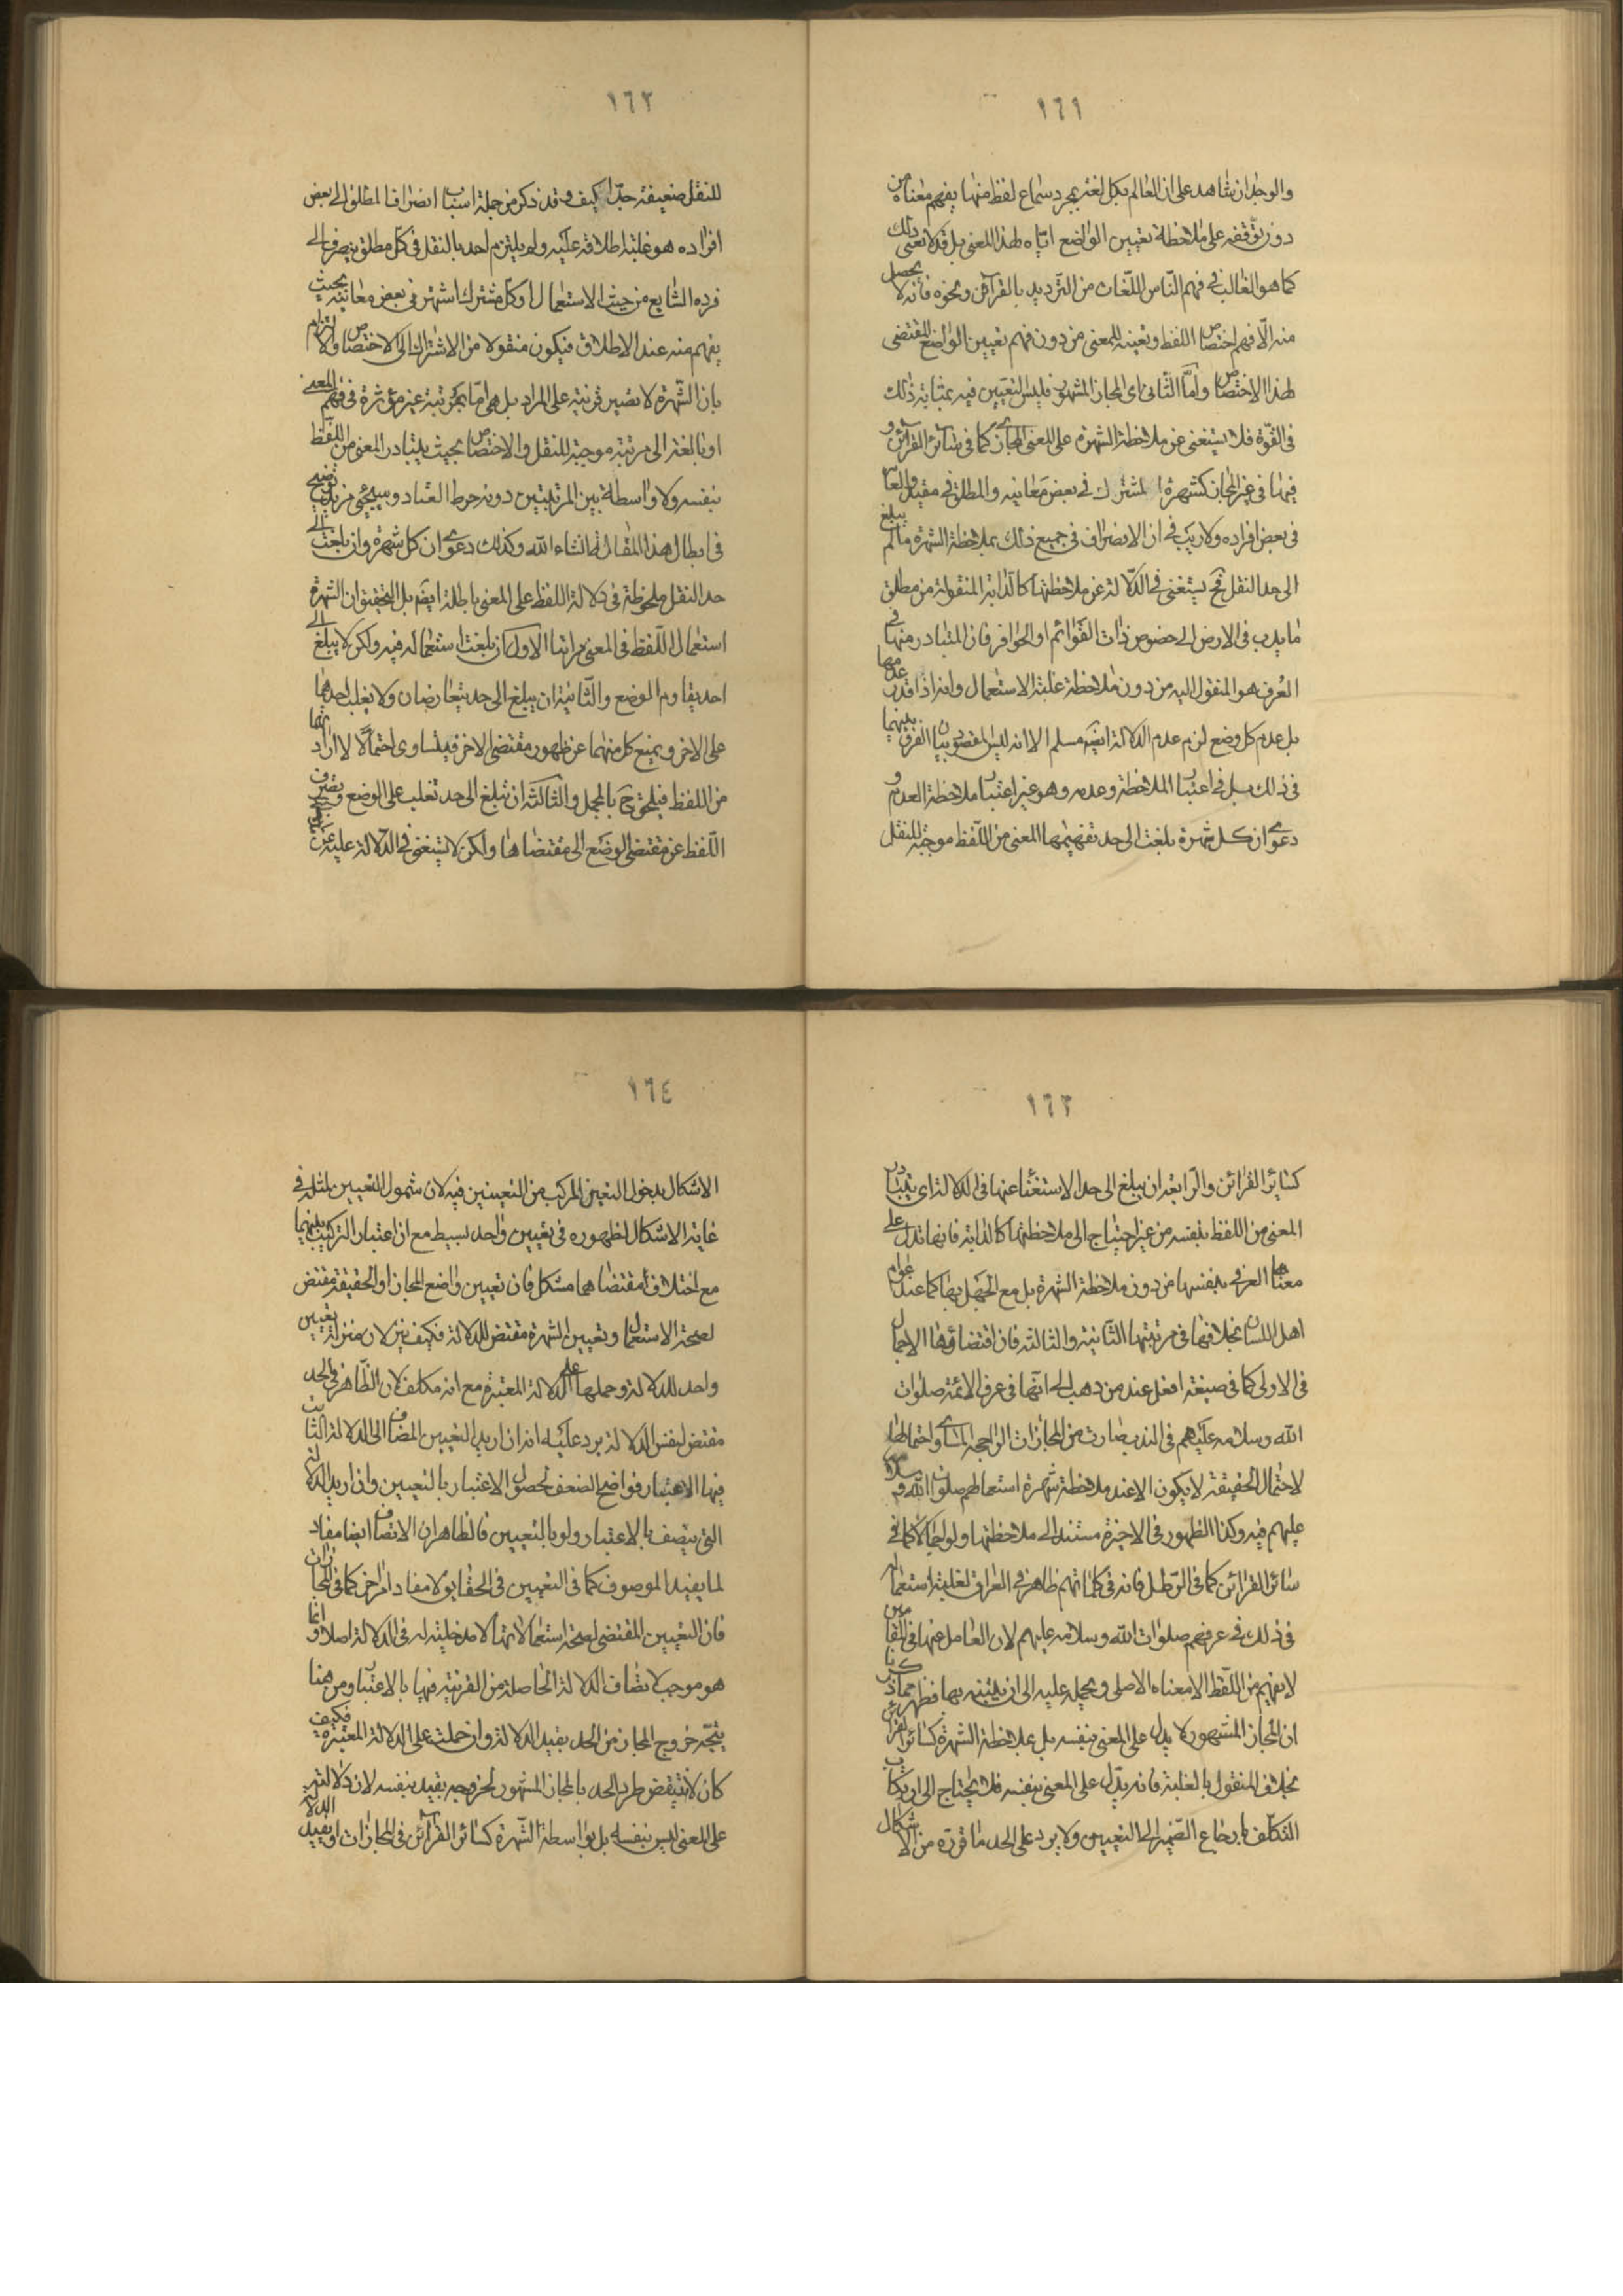 ١٦١
والوجدان شاهد على ان العالم بكل لغة بمجرد سماع لفظ منها يفهم معناه من
دون توقفه على ملاحظة تعيين الواضع اياه لهذا المعنى بل قد لا يعنى ذلك
كما هو الغالب فى فهم الناس اللغات من الترديد بالقرائن ونحوه فانه لا يحصل
منه الا فهم اختصاص اللفظ وتعينه للمعنى من دون فهم تعيين الواضع المقتضى
لهذا الاختصاص واما الثانى اى المجاز المشهور فليس التعيين فيه بمثابة ذلك
فى القوة فلا يستغنى عن ملاحظة الشهرة على المعنى المجازى كما فى سائر القرائن و
فيها فى غير المجاز كشهرة المشترك فى بعض معانيه والمطلق فى مقيد والعام
فى بعض افراده ولا ريب فى ان الانصراف فى جميع ذلك بملاحظة الشهرة ما لم يبلغ
الى حد النقل فح يستغنى فى الدلالة عن ملاحظتها كالدابة المنقولة من مطلق
ما يدب فى الارض الى خصوص ذات القوائم او الحوافر فان المتبادر منها فى
العرف هو المنقول اليه من دون ملاحظة غلبة الاستعمال وانه اذا قدر عدمها
بل عدم كل وضع لزم عدم الدلالة ايضا مسلم الا انه ليس المقصود بيان الفرق بينهما
فى ذلك بل فى اعتبار الملاحظة وعدمه وهو غير اعتبار ملاحظة العدم و
دعوى ان كل شهرة بلغت الى حد تفهيمها المعنى من اللفظ موجبة للنقل
١٦٢
للنقل ضعيفة جدا كيف وقد ذكر من جملة اسباب انصراف المطلق الى بعض
افراده هو غلبة اطلاقه عليه ولم يلتزم احد بالنقل فى كل مطلق ينصرف الى
فرده الشايع من حيث الاستعمال او كل مشترك اشتهر فى بعض معانيه بحيث
يفهم منه عند الاطلاق فيكون منقولا من الاشتراك الى الاختصاص والتزام
بان الشهرة لا تصير قرينة على المراد بل هى اما بمرتبة غير مؤثرة فى فهم المعنى
او بالغة الى مرتبة موجبة للنقل والاختصاص بحيث يتبادر المعنى من اللفظ
بنفسه ولا واسطة بين المرتبتين دونه خرط القتاد وسيجئ مزيد توضيح
فى ابطال هذا المقال انشاء الله وكذلك دعوى ان كل شهرة وان بلغت الى
حد النقل ملحوظة فى دلالة اللفظ على المعنى باطلة ايضا بل التحقيق ان لشهرة
استعمال اللفظ فى المعنى مراتب الاولى ان بلغت استعماله فيه ولكن لا يبلغ الى
احد يقاوم الوضع والثانية ان يبلغ الى حد يتعارضان ولا يغلب احدهما
على الاخر ويمنع كل منهما عن ظهور مقتضى الاخر فيتساوى احتمالا لارادتهما
من اللفظ فيلحق ح بالمجمل والثالثة ان تبلغ الى حد تغلب على الوضع وتصرف
اللفظ عن مقتضى الوضع الى مقتضاها ولكن لا يستغنى فى الدلالة عليه عن
١٦٣
كسائر القرائن والرابعة ان يبلغ الى حد الاستغناء عنها فى الدلالة اى يتبادر
المعنى من اللفظ بنفسه من غير احتياج الى ملاحظتها كالدابة فانها تدل على
معناها العرفى بنفسها من دون ملاحظة الشهرة بل مع الجهل بها كما عند عوام
اهل اللسان بخلافها فى مرتبتها الثانية والثالثة فان اقتضاؤها الاجمال
فى الاولى كما فى صيغة افعل عند من ذهب الى انها فى عرف الائمة صلوات
الله وسلامه عليهم فى الندب صارت من المجازات الراجحة المساوى احتمالها
لاحتمال الحقيقة لا يكون الا عند ملاحظة شهرة استعمالهم صلوات الله وسلامه
عليهم فيه وكذا الظهور فى الاخيرة مستند الى ملاحظتها ولو اجمالا كما فى
سائر القرائن كما فى الرطل فانه فى كلماتهم ظاهر فى العراقى لغلبة استعماله
فى ذلك فى عرفهم صلوات الله وسلامه عليهم لان الغافل عنها فى المقامين
لا يفهم من اللفظ الا معناه الاصلى ويحمله عليه الى ان يتنبه بها فظهر مما ذكرنا
ان المجاز المشهور لا يدل على المعنى بنفسه بل بملاحظة الشهرة كسائر القرائن
بخلاف المنقول بالغلبة فانه يدل على المعنى بنفسه فلا يحتاج الى ارتكاب
التكلف بارجاع الضمير الى التعيين ولا يرد على الحد ما قرره من الاشكال
١٦٤
الاشكال بدخول التعين المركب من التعيينين فيه لان شمول التعيين لمثله فى
غاية الاشكال لظهوره فى تعيين واحد بسيط مع ان اعتبار التركيب بينهما
مع اختلاف مقتضاهما مشكل فان تعيين واضع المجاز او الحقيقة مقتض
لصحة الاستعمال وتعيين الشهرة مقتض للدلالة فكيف ينزلان منزلة تعيين
واحد للدلالة وحملها على الدلالة المعتبرة مع انه مكلف لان الظاهر فى الحد
مقتض لنفس الدلالة يرد عليه انه ان اريد التعيين المضاف الى الدلالة الثابت
فيها الاعتبار فواضح الضعف لحصول الاعتبار بالتعيين وان اريد الدلالة
التى يتصف بالاعتبار ولو بالتعيين فالظاهر ان الاتصاف ايضا مفاد
لما يفيد الموصوف كما فى التعيين فى الحقايق لا مفاد امر اخر كما فى المجازات
فان التعيين المقتضى لصحة استعمالاتها لا مدخلية له فى الدلالة اصلا وانما
هو موجب لاتصاف الدلالة الحاصلة من القرينة فيها بالاعتبار ومن هنا
يتجه خروج المجاز من الحد بقيد الدلالة وان حملت على الدلالة المعتبرة فكيف
كان لا ينتقض طرد الحد بالمجاز المشهور لخروجه بقيد بنفسه لان دلالته
على المعنى ليس بنفسه بل بواسطة الشهرة كسائر القرائن فى المجازات او بقيد الدلالة